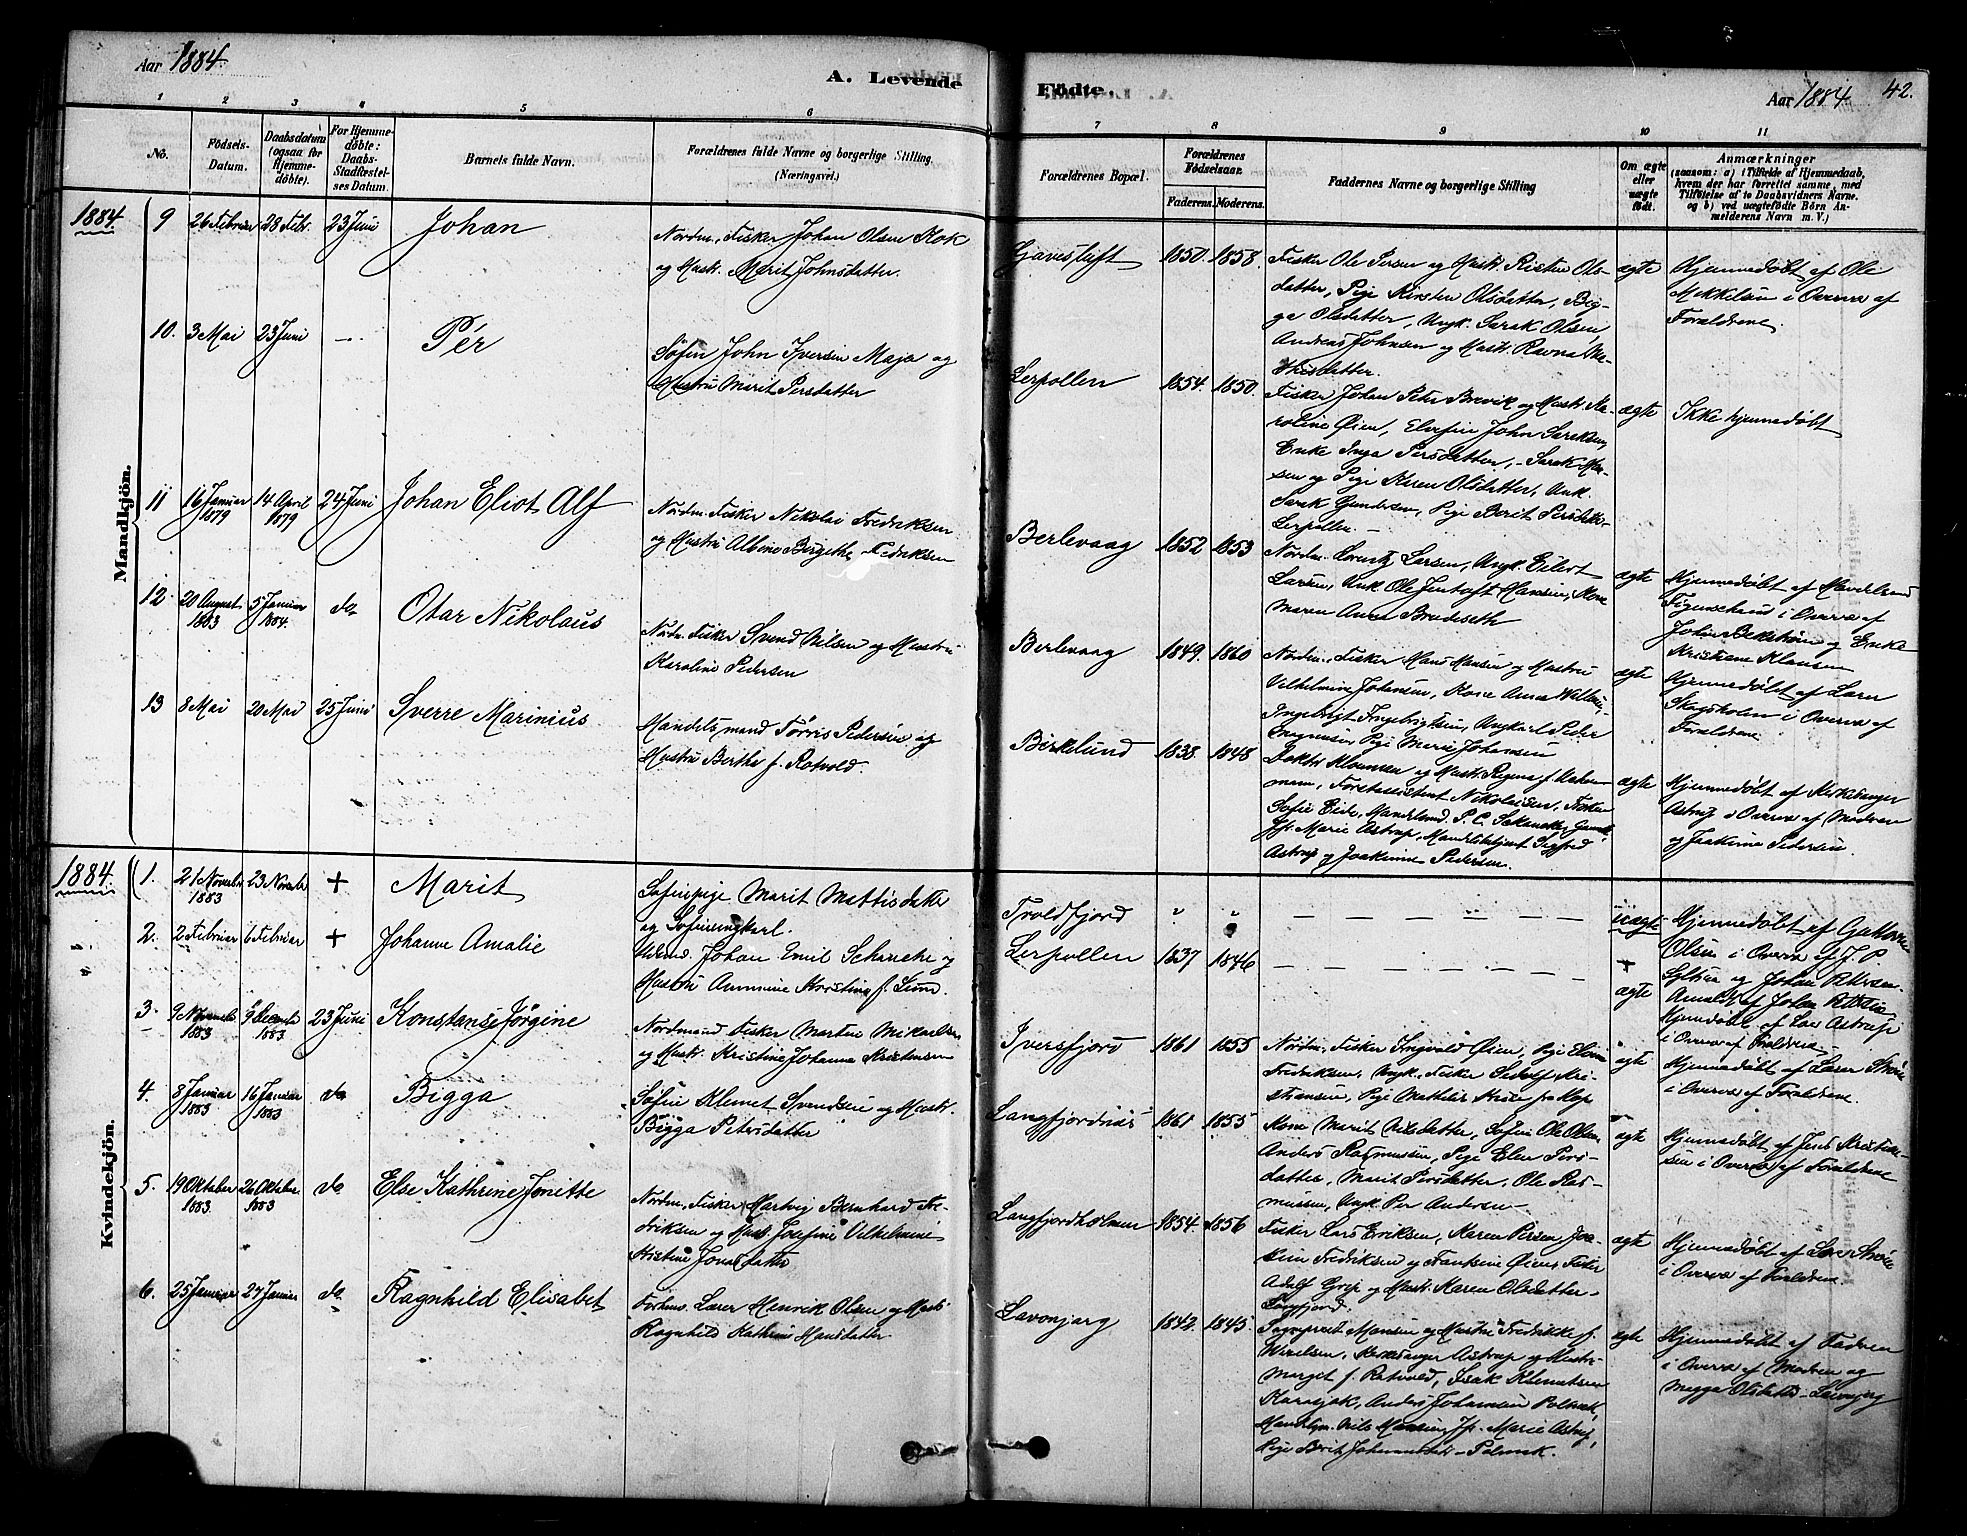 Aar 1884
A. Levende
Fødte.
Aar 1884
42.
1 2 3 4 5 6 7 8 9 10 11
No.
Fødsels-
Datum.
Daabsdatum
(ogsaa for
Hjemme-
døbte).
For Hjemme-
døbte:
Daabs-
Stadfæstel-
ses Datum.
Barnets fulde Navn.
Forældrenes fulde Navne og borgerlige Stilling.
(Næringsvei.)
Forældrenes Bopæl.
Forældrenes
Fødselsaar.
Faderens. Moderens.
Faddernes Navne og borgerlige Stilling
Om ægte
eller
uægte
født.
Anmærkninger
(saasom: a) i Tilfælde af Hjemmedaab,
hvem der har forrettet samme, med
Tilføielse af to Daabsvidners Navne.
og b) ved uægtefødte Børn An-
melderens Navn m. V.)
Mandkjøn.
1884. 9 26 Februar 28 Febr. 23 Juni Johan
Nordm. Fisker Johan Olsen Kok
og Hustr. Marit Johnsdatter.
1850. 1858.
Fisker Ole Persen og Hustr. Risten Ols-
datter, Pige Kirsten Olsdatter, Big-
ga Olsdatter, Ungk. Sarak Olsen
Andreas Johnsen og Hustr. Ravna Ma-
thisdatter.
ægte
Hjemmedøbt af Ole
Mikkelsen i Overv. af
Forældrene.
10. 3 Mai 23 Juni — Pér
Søfin John Iversen Maja og
Hustru Marit Persdatter
Lerpollen 1854. 1850.
Fisker Johan Peter Brevik og Hustr. Ka-
roline Øien, Elvefin John Saraksen,
Enke Inga Persdatter, Sarak
og Pige Karen Olsdatter, Unk.
Sarak Gundersen, Pige Berit
Lerpollen.
ægte
Ikke hjemmedøbt
11 16 Januar 1879 14 April 1879 24 Juni Johan Eliot Alf
Nordm. Fisker Nikolai Fredriksen
og Hustru Albine Bergithe Fredriksen
Berlevaag 1852 1853
Nordm. Lorentz Larsen, Ungk. Eilert
Larsen, Unk. Ole Jentoft Hansen, Kone
Maren Anna Bradeseth
ægte
Hjemmedøbt af Handelsmd
i Overv. af
og Enke
Kristiane Klausen
12 20 August 1883 5 Januar 1884. do Otar Nikolaus
Nordm. Fisker Svend Nilsen og Hustru
Karoline Pedersen
Berlevaag 1849. 1860
Nordm. Fisker Hans Hansen og Hustru
Vilhelmine Johansen, Kone Anna
Ingebrigt Ingebrigtsen, Ungkarl Peder
Mogensen, Pige Marie Johansen
ægte
Hjemmedøbt af Lærer
Skogsholm i Overv. af
Forældrene
13 8 Mai 20 Mai 25 Juni Sverre Marinius
Handelsmand Tørris Pedersen og
Hustru Berthe f. Rotvold.
Birkelund 1838. 1848
Doktor og Hustr.
Nikolaisen, Frøken
Sofie Eide, Handelsmd. P. C.
Marie Astrup, Handelsbetjent Sigfred
Astrup og Joakimine Pedersen.
ægte
Hjemmedøbt af Kirkesanger
Astrup i Overv. af Modren
og Joakimine Pedersen.
Kvindekjøn.
1884. 1. 21 Novembr 1883 23 Novembr + Marit
Søfinpige Marit Mattisdatter
og Søfinungkarl.
Troldfjord " "
— — — —
uægte
Hjemmedøbt af
Olsen i Overv. af J. P.
og Johan Petersen.
Anmeldt af Johan Petersen
" 2. 2 Februar 6 Februar + Johanne Amalie
Johan Emil Schanche og
Hustru Annmine Kristine f. Lund.
Lerpollen 1837 1846
— — — —
+
ægte
Hjemmedøbt af Lær Astrup
i Overv. af Forældrene.
3. 9 Novembr 1883 9 Decembr 1883 23 Juni Konstanse Jørgine
Nordmand Fisker Martin Mikaelsen
og Hustr. Kristine Johanna Kristensen
Iversfjord 1861 1855
Nordm. Fisker Ingvald Øien, Pige
Fredriksen, Ungk. Fisker Sedolf Kri-
stiansen, Pige Mathilde
ægte
Hjemmedøbt af Lærer Strøm
i Overv. af Forældrene.
4. 8 Januar 1883 16 Januar 1883 do Bigga
Søfin Klemet Svendsen og Hustr.
Bigga Petersdatter
Langfjordnæs 1861 1855
Kone Marit Nilsdatter, Søfin Ole Olsen
Anders Rasmussen, Pige Elen Pers-
datter, Marit Persdatter, Ole Ras-
mussen, Ungk. Per Andersen
ægte
Hjemmedøbt af Jens Kristian-
sen i Overv. af Forældrene
5. 19 Oktober 1883 26 Oktober 1883 do Else Kathrine Jonette
Nordm. Fisker Hartvig Bernhard Fre-
driksen og Hust. Josefine Vilhelmine
Kristine Jonasdatter
Langfjordholmen 1854. 1856
Fisker Lars Eriksen, Karen Persen, Joa-
kim Fredriksen og Frantsine Øien, Fisker
Adolf Grip og Hustr. Karen Olsdatter
Langfjord.
ægte
Hjemmedøbt af Lær Strøm
i Overv. af Forældrene.
6. 25 Januar 27 Januar do Ragnhild Elisabet
Forhenv. Lærer Henrik Olsen og Hustr.
Ragnhild Kathrine Hansdatter
Lavonjarg 1842. 1845.
Sogneprest Hansen og Hustru Fredrikke f.
Wexelsen, Kirkesanger Astrup og Hustru
Marget f. Rotvold, Isak Klemetsen
Karasjok, Anders Johansen Polmak,
Handlsm. Nils Hansen, Jfr. Marie Astrup,
Pige Berit Johannesdtr Polmak.
ægte
Hjemmedøbt af Fadren
i Overv. af Modren og
Megga Olsdatter Lavonjarg